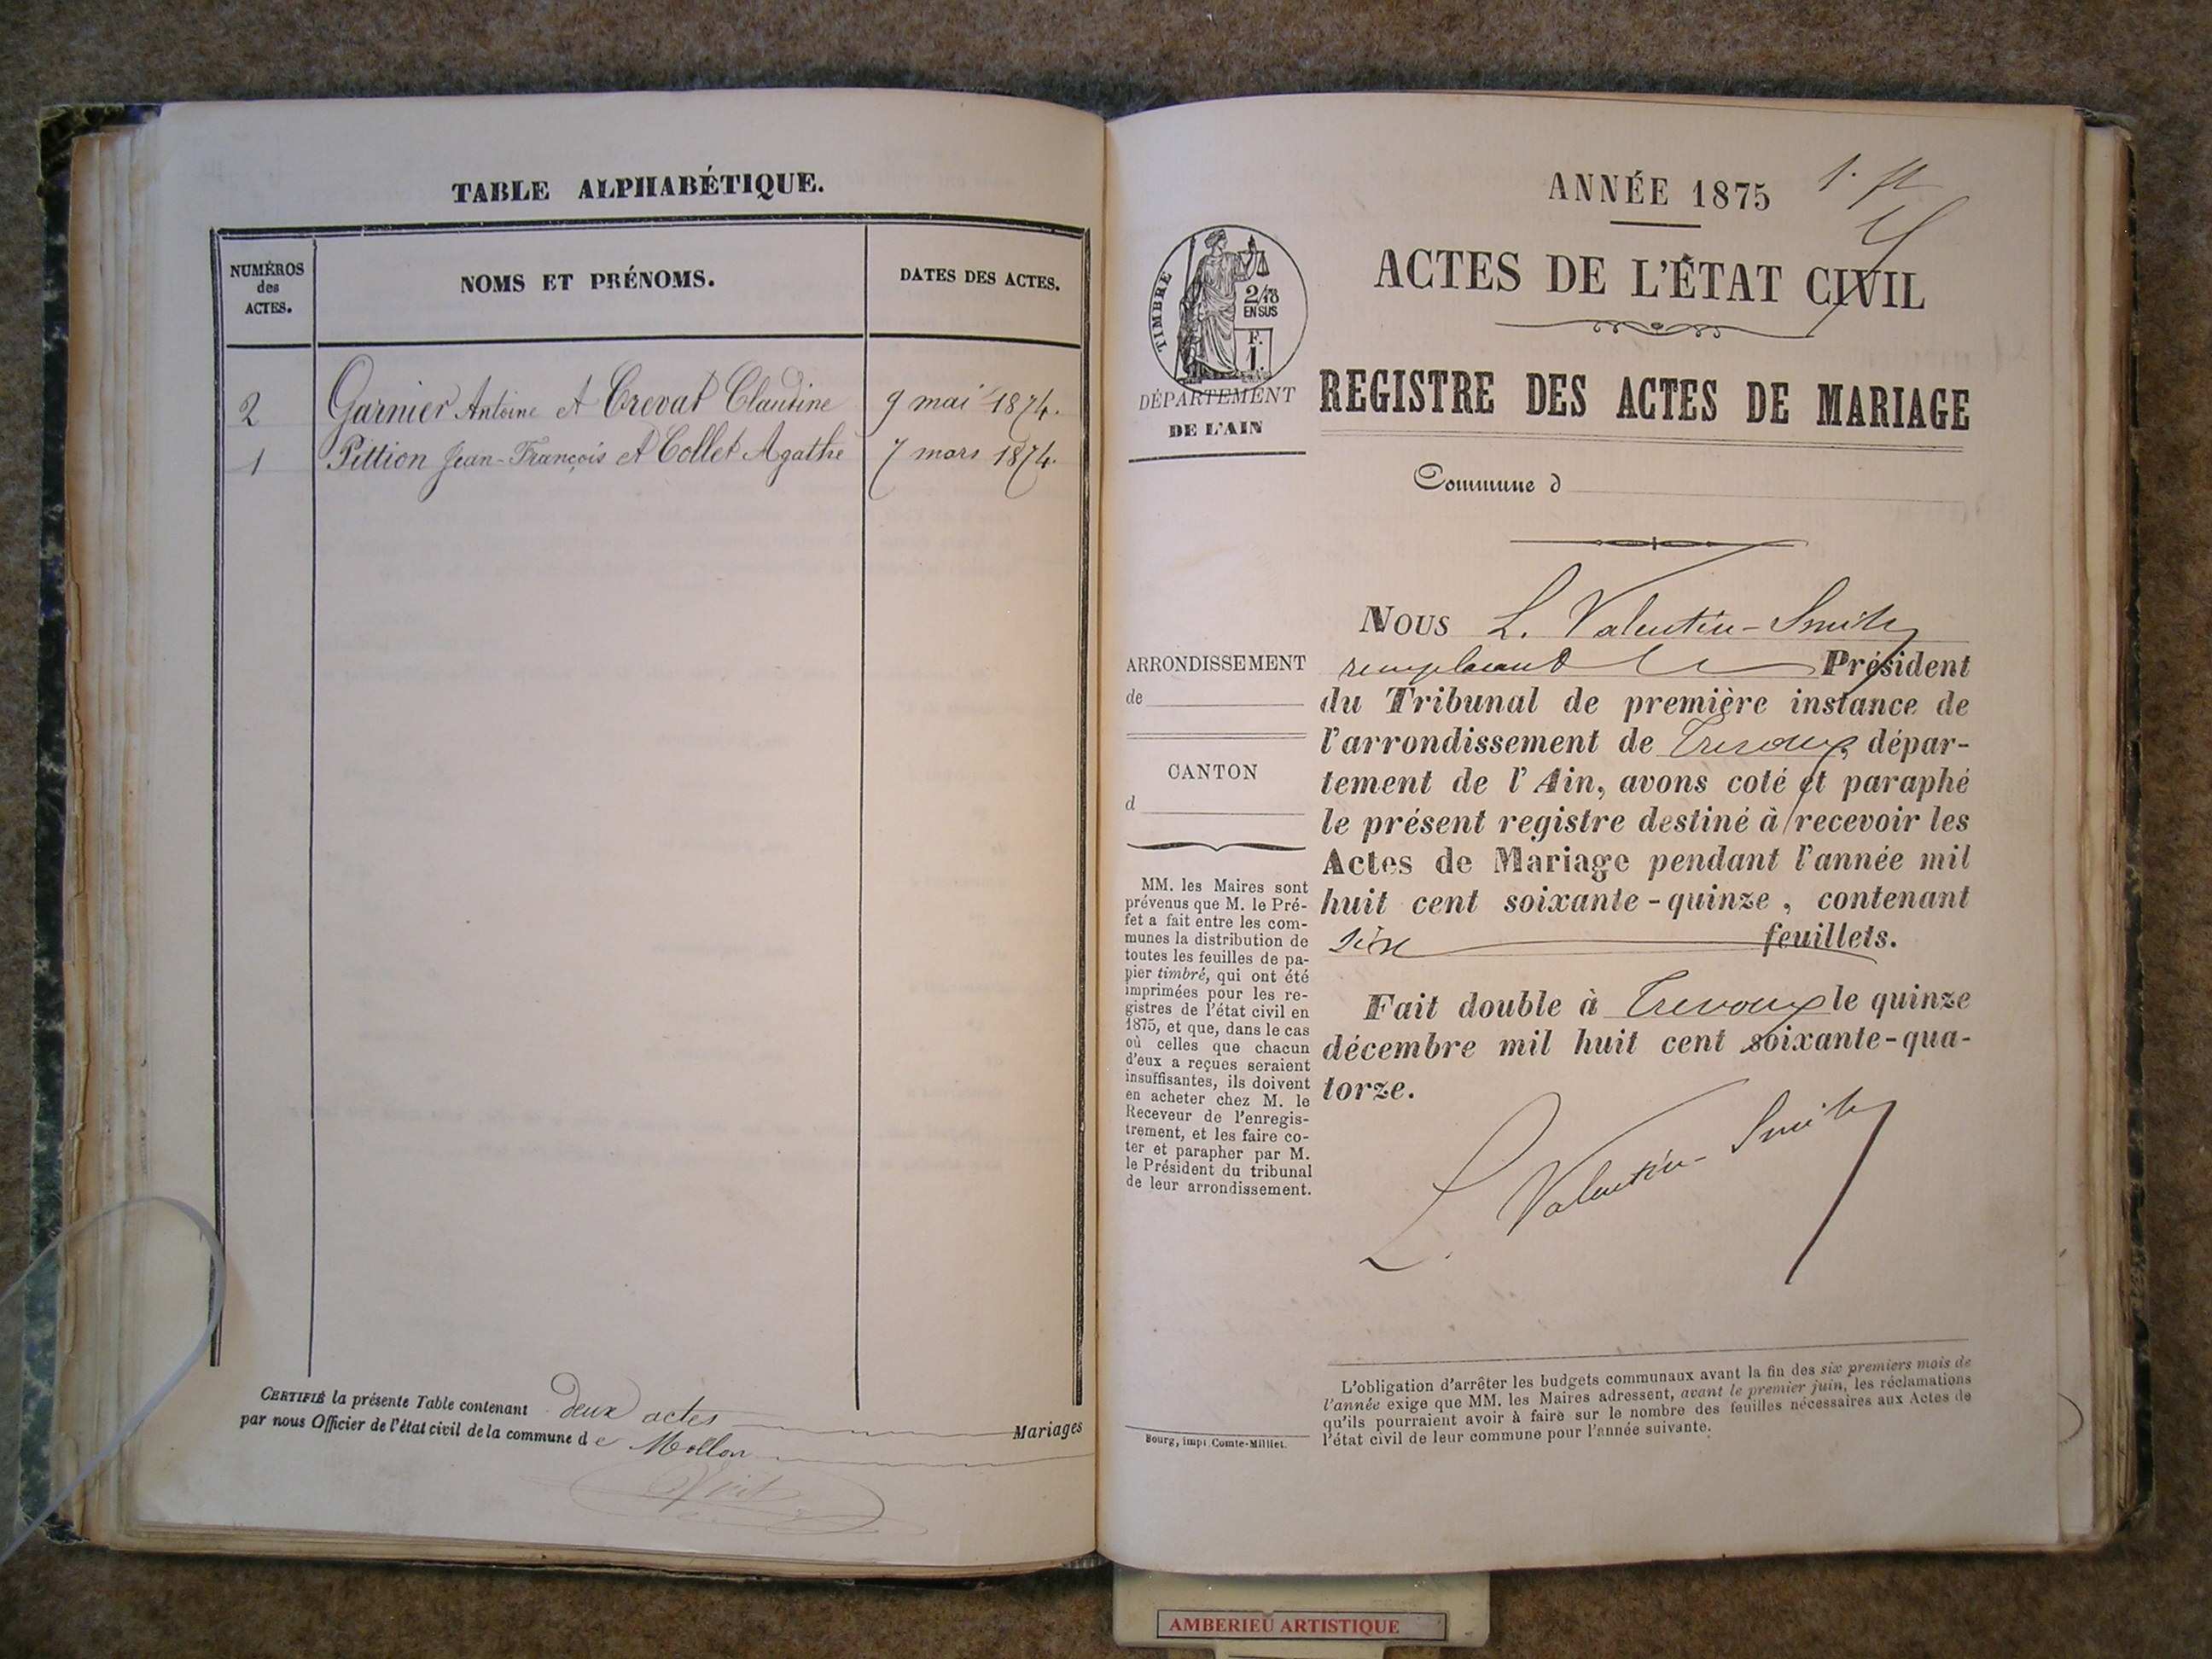 TABLE ALPHABÉTIQUE.
NUMÉROS
des
ACTES.
NOMS ET PRÉNOMS.
DATES DES ACTES.
2 Garnier Antoine et Crevat Claudine 9 mai 1874.
1 Pittion Jean-François et Collet Agathe 7 mars 1874.
CERTIFIÉ la présente Table contenant deux actes Mariages
par nous Officier de l'état civil de la commune de Mollon
ANNÉE 1875
ACTES DE L'ÉTAT CIVIL
TIMBRE
2/10
EN SUS
F.
1.
DÉPARTEMENT
DE L'AIN
REGISTRE DES ACTES DE MARIAGE
Commune d
ARRONDISSEMENT
de
CANTON
d
MM. les Maires sont
prévenus que M. le Pré-
fet a fait entre les com-
munes la distribution de
toutes les feuilles de pa-
pier timbré, qui ont été
imprimées pour les re-
gistres de l'état civil en
1875, et que, dans le cas
où celles que chacun
d'eux a reçues seraient
insuffisantes, ils doivent
en acheter chez M. le
Receveur de l'enregis-
trement, et les faire co-
ter et parapher par M.
le Président du tribunal
de leur arrondissement.
Bourg, impr. Comte-Milliet.
NOUS L. Valentin-Smith
remplacant le Président
du Tribunal de première instance de
l'arrondissement de Trevoux, dépar-
tement de l'Ain, avons coté et paraphé
le présent registre destiné à recevoir les
Actes de Mariage pendant l'année mil
huit cent soixante-quinze, contenant
six feuillets.
Fait double à Trevoux le quinze
décembre mil huit cent soixante-qua-
torze.
L. Valentin-Smith
L'obligation d'arrêter les budgets communaux avant la fin des six premiers mois de
l'année exige que MM. les Maires adressent, avant le premier juin, les réclamations
qu'ils pourraient avoir à faire sur le nombre des feuilles nécessaires aux Actes de
l'état civil de leur commune pour l'année suivante.
AMBERIEU ARTISTIQUE